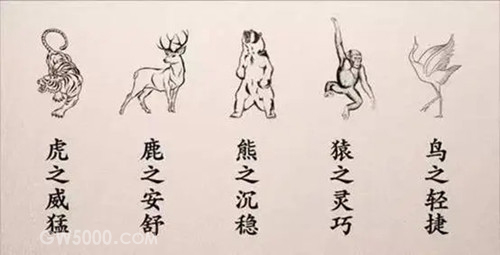 虎之威猛
鹿之安舒
熊之沉稳
猿之灵巧
鸟之轻捷
GW5000.com